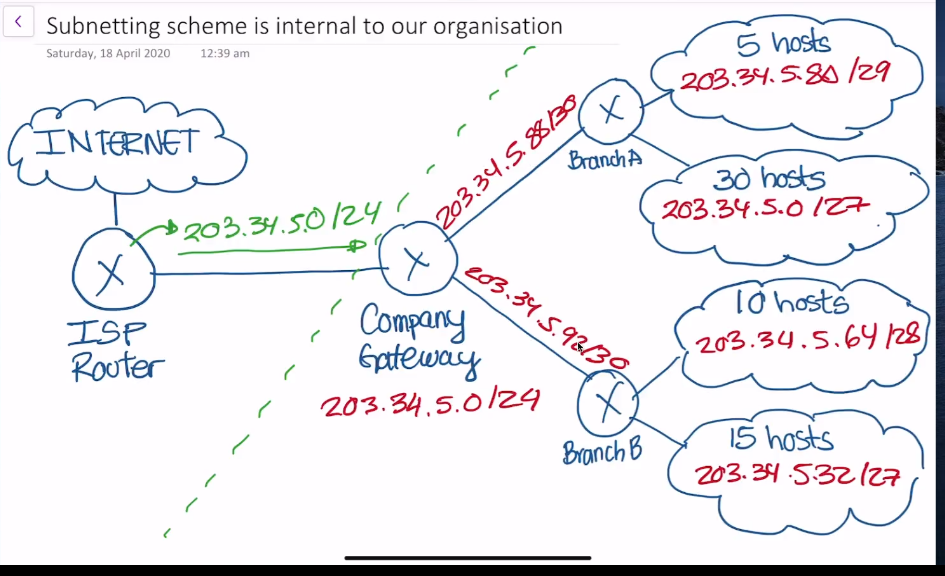 Subnetting scheme is internal to our organisation
Saturday, 18 April 2020 12:39 am
INTERNET
203.34.5.0/24
ISP
Router
Company
Gateway
203.34.5.0/24
203.34.5.88/30
Branch A
203.34.5.92/30
Branch B
5 hosts
203.34.5.80/29
30 hosts
203.34.5.0/27
10 hosts
203.34.5.64/28
15 hosts
203.34.5.32/27
X
X
X
X